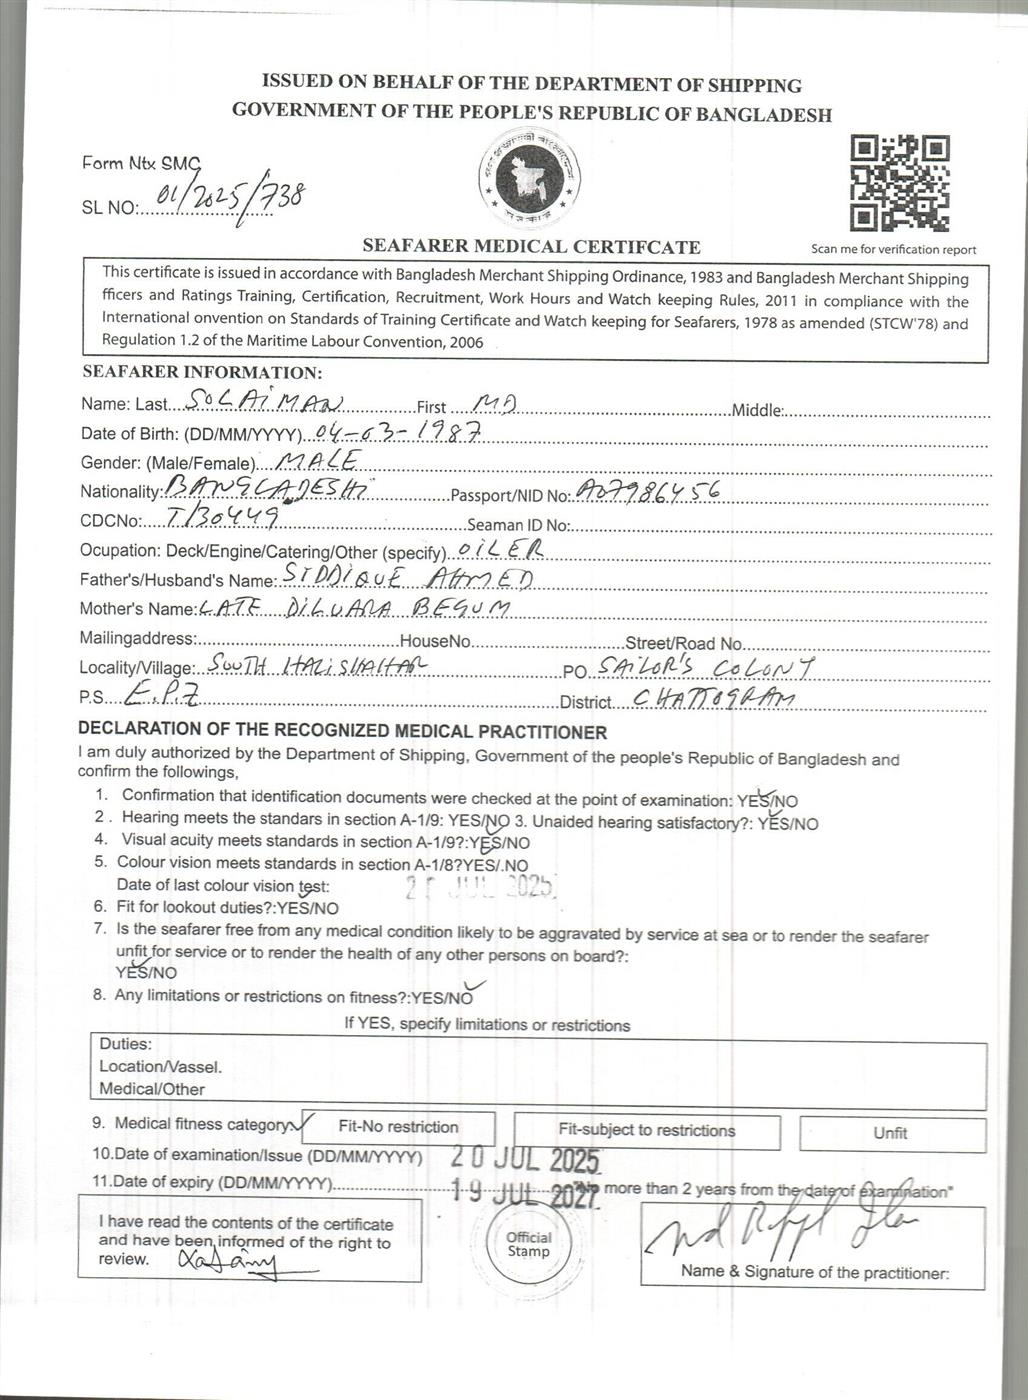 ISSUED ON BEHALF OF THE DEPARTMENT OF SHIPPING
GOVERNMENT OF THE PEOPLE'S REPUBLIC OF BANGLADESH
Form Ntx SMC
SL NO:..01/2025/738
SEAFARER MEDICAL CERTIFCATE
Scan me for verification report
This certificate is issued in accordance with Bangladesh Merchant Shipping Ordinance, 1983 and Bangladesh Merchant Shipping
fficers and Ratings Training, Certification, Recruitment, Work Hours and Watch keeping Rules, 2011 in compliance with the
International onvention on Standards of Training Certificate and Watch keeping for Seafarers, 1978 as amended (STCW'78) and
Regulation 1.2 of the Maritime Labour Convention, 2006
SEAFARER INFORMATION:
Name: Last...SOLAIMAN...First...MD...Middle:
Date of Birth: (DD/MM/YYYY)...04-03-1987
Gender: (Male/Female)...MALE
Nationality:BANGLADESHI...Passport/NID No:A07986456
CDCNo:...T/30449...Seaman ID No:
Ocupation: Deck/Engine/Catering/Other (specify)..OILER
Father's/Husband's Name:SIDDIQUE AHMED
Mother's Name:LATE DILUARA BEGUM
Mailingaddress:...HouseNo...Street/Road No
Locality/Village:..SOUTH HALISHAHAR...PO SAILOR'S COLONY
P.S...E.P.Z...District...CHATTOGRAM
DECLARATION OF THE RECOGNIZED MEDICAL PRACTITIONER
I am duly authorized by the Department of Shipping, Government of the people's Republic of Bangladesh and
confirm the followings,
1. Confirmation that identification documents were checked at the point of examination: YES/NO
2 . Hearing meets the standars in section A-1/9: YES/NO 3. Unaided hearing satisfactory?: YES/NO
4. Visual acuity meets standards in section A-1/9?:YES/NO
5. Colour vision meets standards in section A-1/8?YES/.NO
Date of last colour vision test: JUL 2025
6. Fit for lookout duties?:YES/NO
7. Is the seafarer free from any medical condition likely to be aggravated by service at sea or to render the seafarer
unfit for service or to render the health of any other persons on board?:
YES/NO
8. Any limitations or restrictions on fitness?:YES/NO
If YES, specify limitations or restrictions
Duties:
Location/Vassel.
Medical/Other
9. Medical fitness category Fit-No restriction Fit-subject to restrictions Unfit
10.Date of examination/Issue (DD/MM/YYYY) 20 JUL 2025
11.Date of expiry (DD/MM/YYYY)...19 JUL 2027 more than 2 years from the date of examination"
I have read the contents of the certificate
and have been informed of the right to
review.
Official
Stamp
Name & Signature of the practitioner: